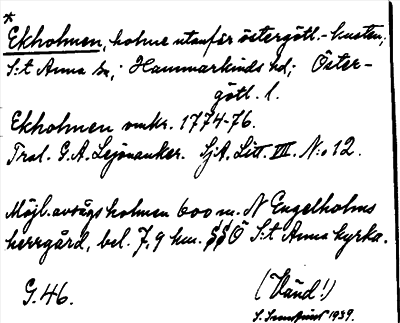 *
Ekholmen, holme utanför östergötl.-kusten;
S:t Anna sn; Hammarkinds hd; Öster-
götl. l.
Ekholmen omkr. 1774-76.
Tral. G.A. Lejonanker. SjA, Litt. III. N:o 12.
Möjl. avsågs holmen 600 m. N Engelholms
herrgård, bel. 7,9 km. SSÖ S:t Anna kyrka.
G. 46.
(Vänd!)
S. 1939.